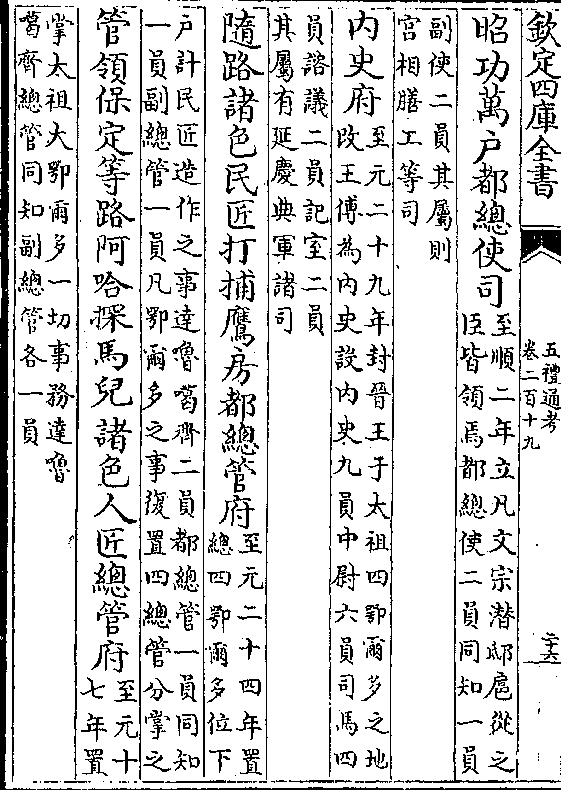 欽定四庫全書
五禮通考
卷二百十九
二十六
昭功萬戸都總使司
至順二年立凡文宗潛邸扈從之
臣皆領焉都總使二員同知一員
副使二員其屬則
宫相膳工等司
内史府
至元二十九年封晉王于太祖四鄂爾多之地
改王傅為内史設内史九員中尉六員司馬四
員諮議二員記室二員
其屬有延慶典軍諸司
隨路諸色民匠打捕鷹房都總管府
至元二十四年置
總四鄂爾多位下
户計民匠造作之事達嚕噶齊二員都總管一員同知
一員副總管一員凡鄂爾多之事復置四總管分掌之
管領保定等路阿哈探馬兒諸色人匠總管府
至元十
七年置
掌太祖大鄂爾多一切事務達嚕
噶齊總管同知副總管各一員